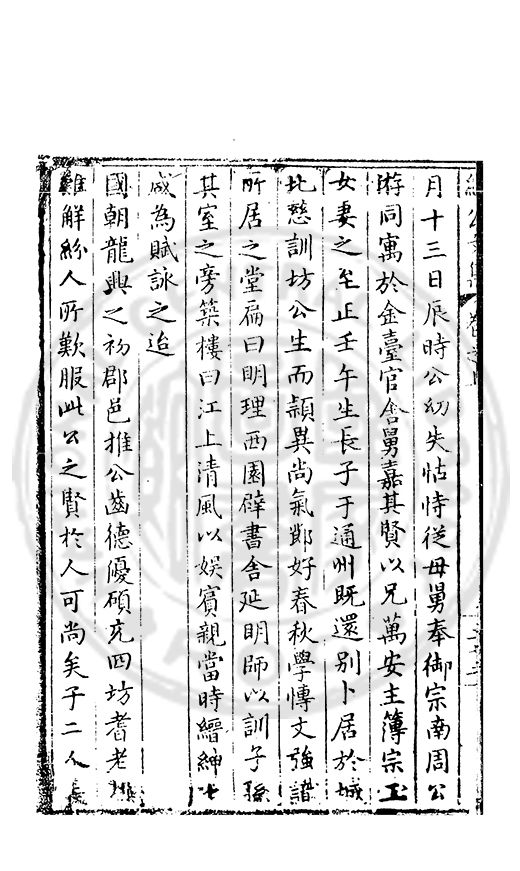 月十三日辰時公幼失怙恃從母舅奉御宗南周公
游同寓於金臺官舍舅嘉其賢以兄萬安主簿宗玉
女妻之至正壬午生長子于通州既還別卜居於城
北慈訓坊公生而穎異尚氣節好春秋學博文強譜
所居之堂扁曰明理西園辟書舍延明師以訓子孫
其室之旁築樓曰江上清風以娛賓親當時縉紳
咸為賦詠之迨
國朝龍興之初郡邑推公齒德優碩充四坊耆老
難解紛人所歎服此公之賢於人可尚矣子二人長